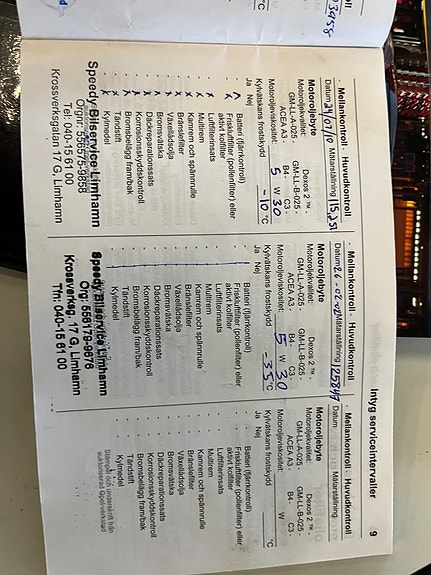 Intyg serviceintervaller
9
- Mellankontroll - Huvudkontroll
Mätarställning 115,251
Motoroljebyte
Motoroljekvalitet: Dexos 2 ™ -
GM-LL-A-025 - GM-LL-B-025 -
ACEA A3 - B4 - C3 -
Motoroljeviskositet: 5 W 30
Kylvätskans frostskydd -10 °C
Ja Nej
Batteri (fjärrkontroll)
Friskluftfilter (pollenfilter) eller
aktivt kolfilter
Luftfilterinsats
Multirem
Kamrem och spännrulle
Bränslefilter
Växellådsolja
Bromsvätska
Däckreparationssats
Korrosionsskyddskontroll
Bromsbelägg fram/bak
Tändstift
Kylmedel
Speedy Bilservice Limhamn
Orgnr: 556575-9858
Krossverksgatan 17 G, Limhamn
Tel: 040-15 61 00
- Mellankontroll - Huvudkontroll
Datum Mätarställning 125847
Motoroljebyte
Motoroljekvalitet: Dexos 2 ™ -
GM-LL-A-025 - GM-LL-B-025 -
ACEA A3 - B4 - C3 -
Motoroljeviskositet: 5 W 30
Kylvätskans frostskydd -35 °C
Ja Nej
Batteri (fjärrkontroll)
Friskluftfilter (pollenfilter) eller
aktivt kolfilter
Luftfilterinsats
Multirem
Kamrem och spännrulle
Bränslefilter
Växellådsolja
Bromsvätska
Däckreparationssats
Korrosionsskyddskontroll
Bromsbelägg fram/bak
Tändstift
Kylmedel
Speedy Bilservice Limhamn
Org: 559179-9676
Krossverksg. 17 G, Limhamn
Tfn: 040-15 61 00
- Mellankontroll - Huvudkontroll
Datum Mätarställning
Motoroljebyte
Motoroljekvalitet: Dexos 2 ™ -
GM-LL-A-025 - GM-LL-B-025 -
ACEA A3 - B4 - C3 -
Motoroljeviskositet: W
Kylvätskans frostskydd °C
Ja Nej
Batteri (fjärrkontroll)
Friskluftfilter (pollenfilter) eller
aktivt kolfilter
Luftfilterinsats
Multirem
Kamrem och spännrulle
Bränslefilter
Växellådsolja
Bromsvätska
Däckreparationssats
Korrosionsskyddskontroll
Bromsbelägg fram/bak
Tändstift
Kylmedel
Stämpel och underskrift från
auktoriserad Opelverkstad